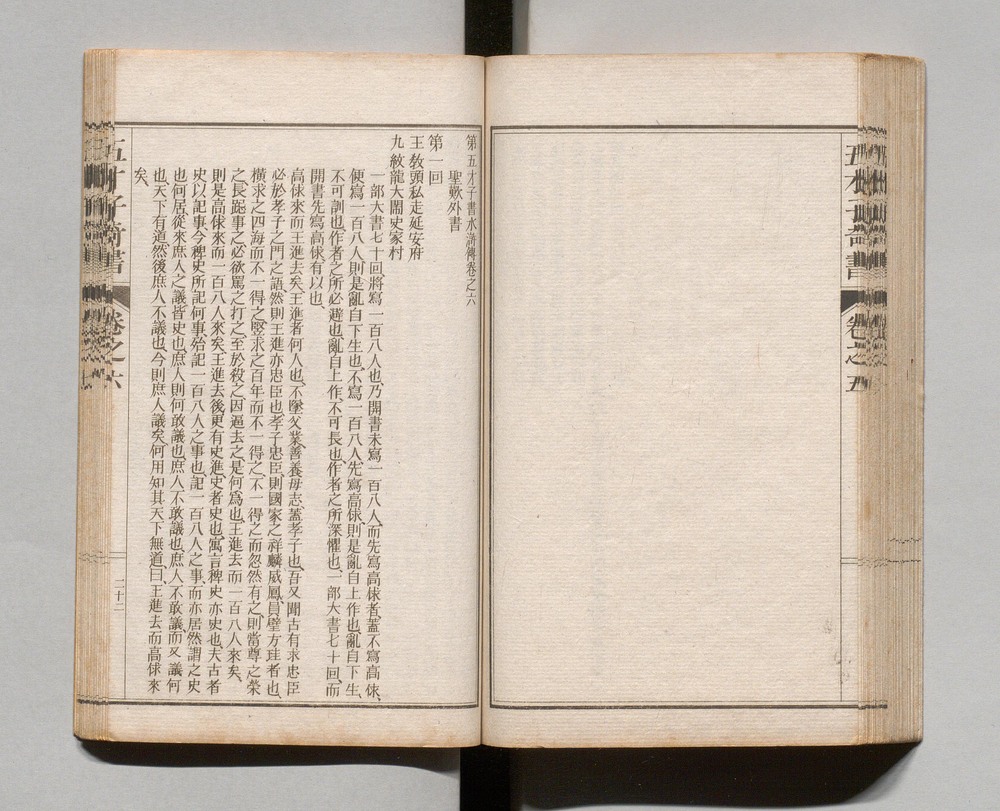 五才子奇書
卷之五
第五才子書水滸傳卷之六
聖歎外書
第一回
王教頭私走延安府
九紋龍大鬧史家村
一部大書七十回將寫一百八人也乃開書未寫一百八人而先寫高俅者蓋不寫高俅、
便寫一百八人則是亂自下生也不寫一百八人先寫高俅則是亂自上作也亂自下生、
不可訓也作者之所必避也亂自上作不可長也作者之所深懼也一部大書七十回而
開書先寫高俅有以也、
高俅來而王進去矣王進者何人也不墜父業善養母志蓋孝子也吾又聞古有求忠臣
必於孝子之門之語然則王進亦忠臣也孝子忠臣則國家之祥麟威鳳員璧方珪者也、
橫求之四海而不一得之豎求之百年而不一得之不一得之而忽然有之則當尊之榮
之長跽事之必欲罵之打之至於殺之因逼去之是何為也王進去而一百八人來矣、
則是高俅來而一百八人來矣王進去後更有史進史者史也寓言稗史亦史也夫古者
史以記事今稗史所記何事殆記一百八人之事也記一百八人之事而亦居然謂之史
也何居從來庶人之議皆史也庶人則何敢議也庶人不敢議也庶人不敢議而又議何
也天下有道然後庶人不議也今則庶人議矣何用知其天下無道曰王進去而高俅來
矣、
五才子奇書
卷之六
二十二